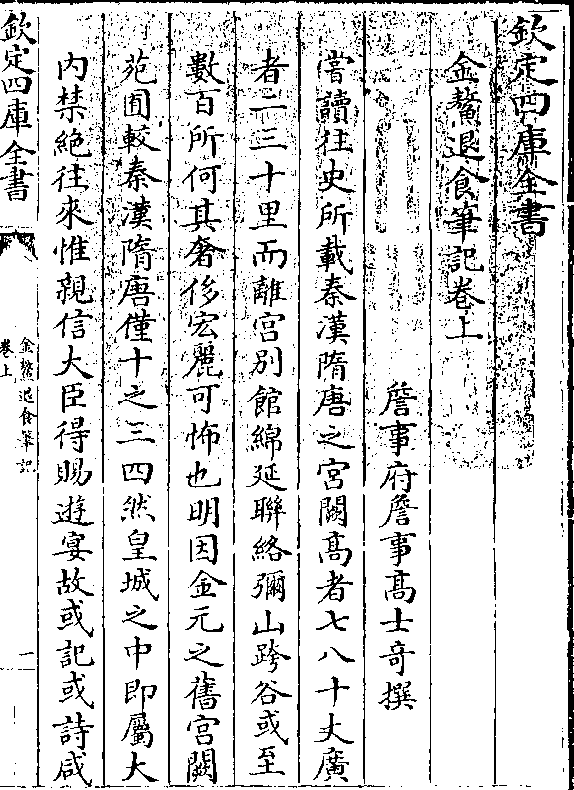 欽定四庫全書
金鰲退食筆記卷上
詹事府詹事髙士竒撰
嘗讀往史所載秦漢隋唐之宮闕髙者七八十丈廣
者二三十里而離宮别館綿延聯絡彌山跨谷或至
數百所何其奢侈宏麗可怖也明因金元之舊宮闕
苑囿較秦漢隋唐僅十之三四然皇城之中即屬大
内禁絶往來惟親信大臣得賜遊宴故或記或詩咸
欽定四庫全書
金鰲退食筆記
卷上
一